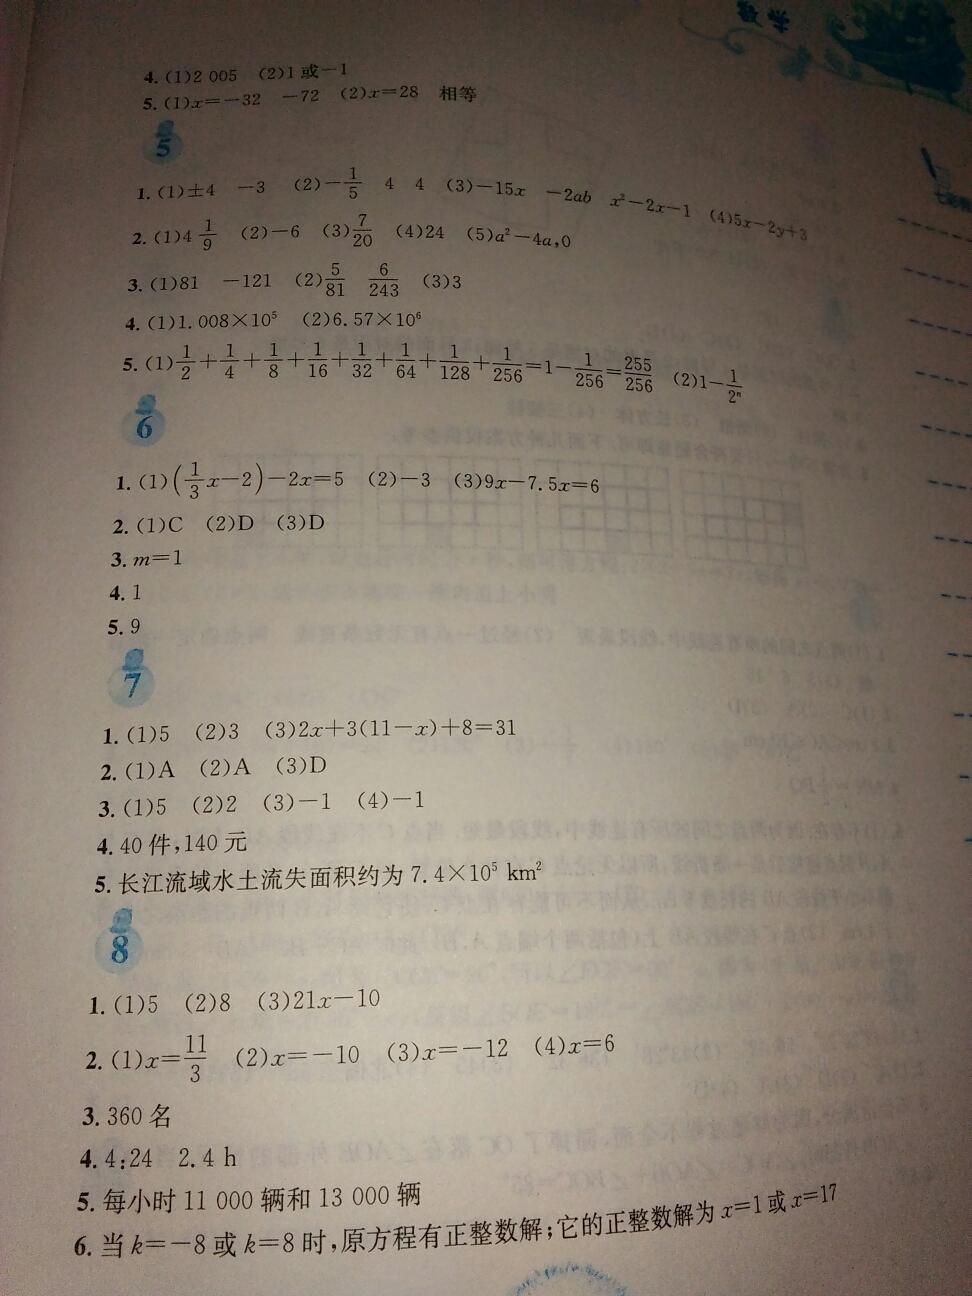 数学
4. (1)2 005 (2)1或-1
5. (1)x=-32 -72 (2)x=28 相等
5
1. (1)±4 -3 (2)-1/5 4 4 (3)-15x -2ab x²-2x-1 (4)5x-2y+3
2. (1)4 1/9 (2)-6 (3)7/20 (4)24 (5)a²-4a,0
3. (1)81 -121 (2)5/81 6/243 (3)3
4. (1)1.008×10⁵ (2)6.57×10⁶
5. (1)1/2+1/4+1/8+1/16+1/32+1/64+1/128+1/256=1-1/256=255/256 (2)1-1/2ⁿ
6
1. (1)(1/3x-2)-2x=5 (2)-3 (3)9x-7.5x=6
2. (1)C (2)D (3)D
3. m=1
4. 1
5. 9
7
1. (1)5 (2)3 (3)2x+3(11-x)+8=31
2. (1)A (2)A (3)D
3. (1)5 (2)2 (3)-1 (4)-1
4. 40件,140元
5. 长江流域水土流失面积约为7.4×10⁵ km²
8
1. (1)5 (2)8 (3)21x-10
2. (1)x=11/3 (2)x=-10 (3)x=-12 (4)x=6
3. 360名
4. 4:24 2.4 h
5. 每小时11 000辆和13 000辆
6. 当k=-8或k=8时,原方程有正整数解;它的正整数解为x=1或x=17